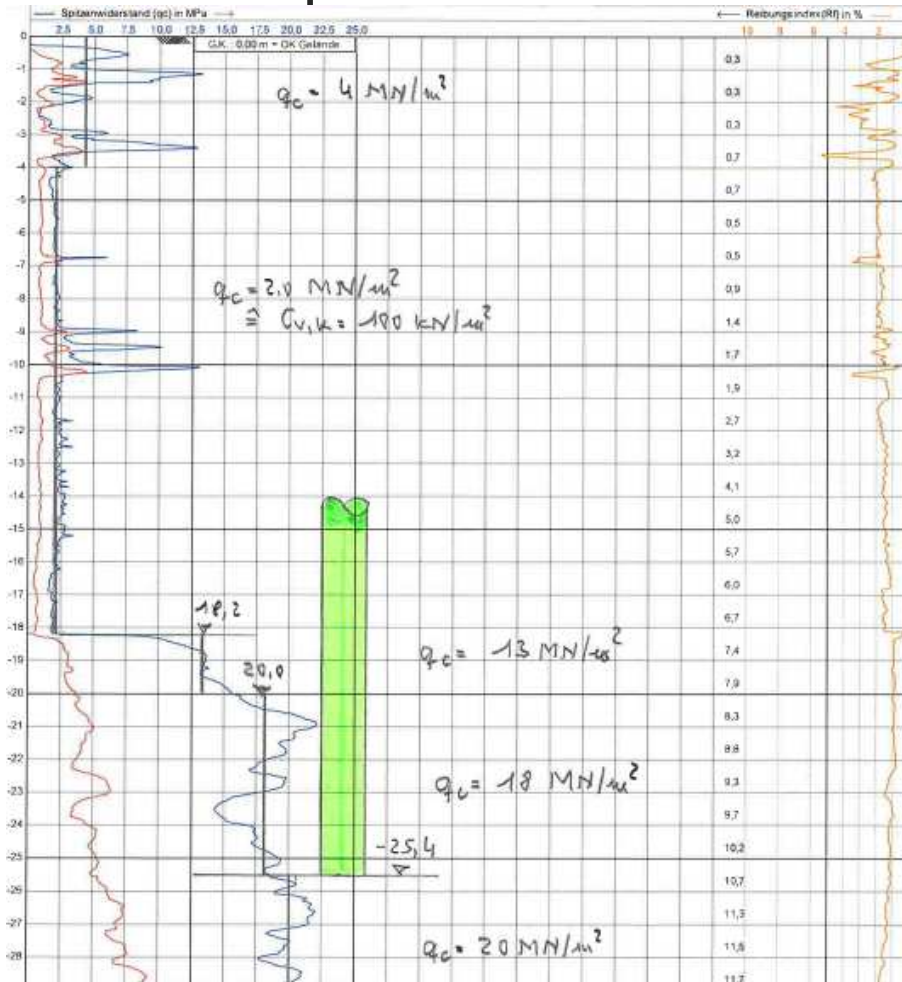 Spitzenwiderstand (qc) in MPa
Reibungsindex(Rf) in %
2.5 5.0 7.5 10.0 12.5 15.0 17.5 20.0 22.5 25.0
10 8 6 4 2
G.K. : 0.00 m = OK Gelände
0
-1
-2
-3
-4
-5
-6
-7
-8
-9
-10
-11
-12
-13
-14
-15
-16
-17
-18
-19
-20
-21
-22
-23
-24
-25
-26
-27
-28
qc = 4 MN/m²
qc = 2,0 MN/m²
≙ Cv,k = 100 kN/m²
18,2
20,0
qc = 13 MN/m²
qc = 18 MN/m²
-25,4
qc = 20 MN/m²
0,3
0,3
0,3
0,7
0,7
0,5
0,5
0,9
1,4
1,7
1,9
2,7
3,2
4,1
5,0
5,7
6,0
6,7
7,4
7,9
8,3
8,8
9,3
9,7
10,2
10,7
11,3